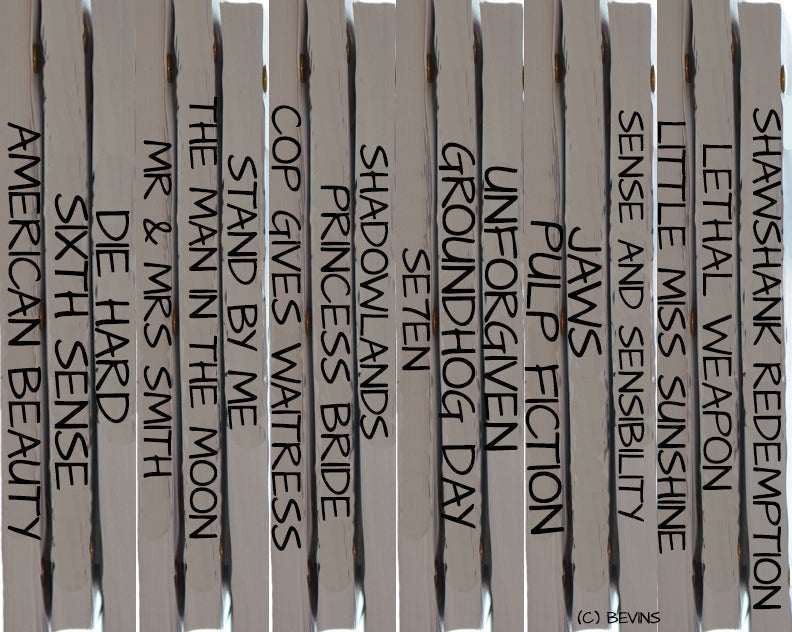 AMERICAN BEAUTY
SIXTH SENSE
DIE HARD
MR & MRS SMITH
THE MAN IN THE MOON
STAND BY ME
COP GIVES WAITRESS
PRINCESS BRIDE
SHADOWLANDS
SE7EN
GROUNDHOG DAY
UNFORGIVEN
PULP FICTION
JAWS
SENSE AND SENSIBILITY
LITTLE MISS SUNSHINE
LETHAL WEAPON
SHAWSHANK REDEMPTION
(C) BEVINS